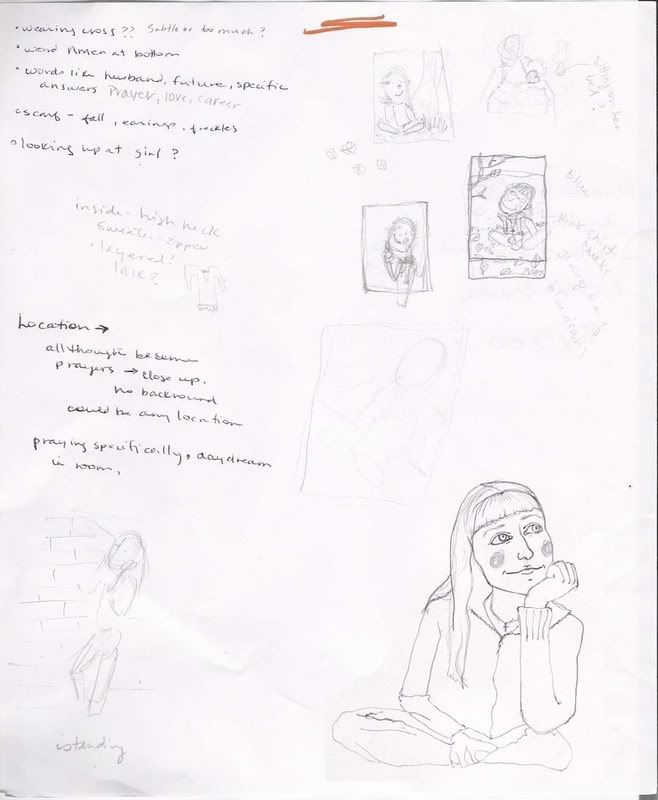 • wearing cross?? Subtle or too much?
• word Amen at bottom
• words like husband, future, specific
answers Prayer, love, career
• scarf - fall, earings, freckles
• looking up at girl?
sitting on her
inside - high neck
Sweater - zipper
• layered?
lace?
Blue
Pink shirt
cheeks
Location →
all thoughts become
prayers → close up.
no backround
could be any location
praying specifically, daydream
in room,
standing